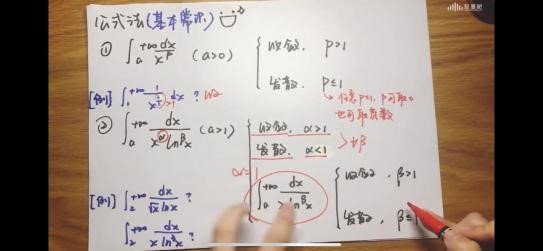 公式法(基本常识)
① ∫a^+∞ dx/x^p (a>0) { 收敛, p>1
发散, p≤1
[例1] ∫1^+∞ 1/x dx ? 收
>1
→ 任意 p<1, p可取0
也可取负数
② ∫a^+∞ dx/(x^α ln^β x) (a>1) { 收敛, α>1
发散, α<1 > 对β
α=1
∫a^+∞ dx/(x ln^β x) { 收敛, β>1
发散, β≤1
[例1] ∫2^+∞ dx/(√x ln x) ?
∫2^+∞ dx/(x ln² x) ?